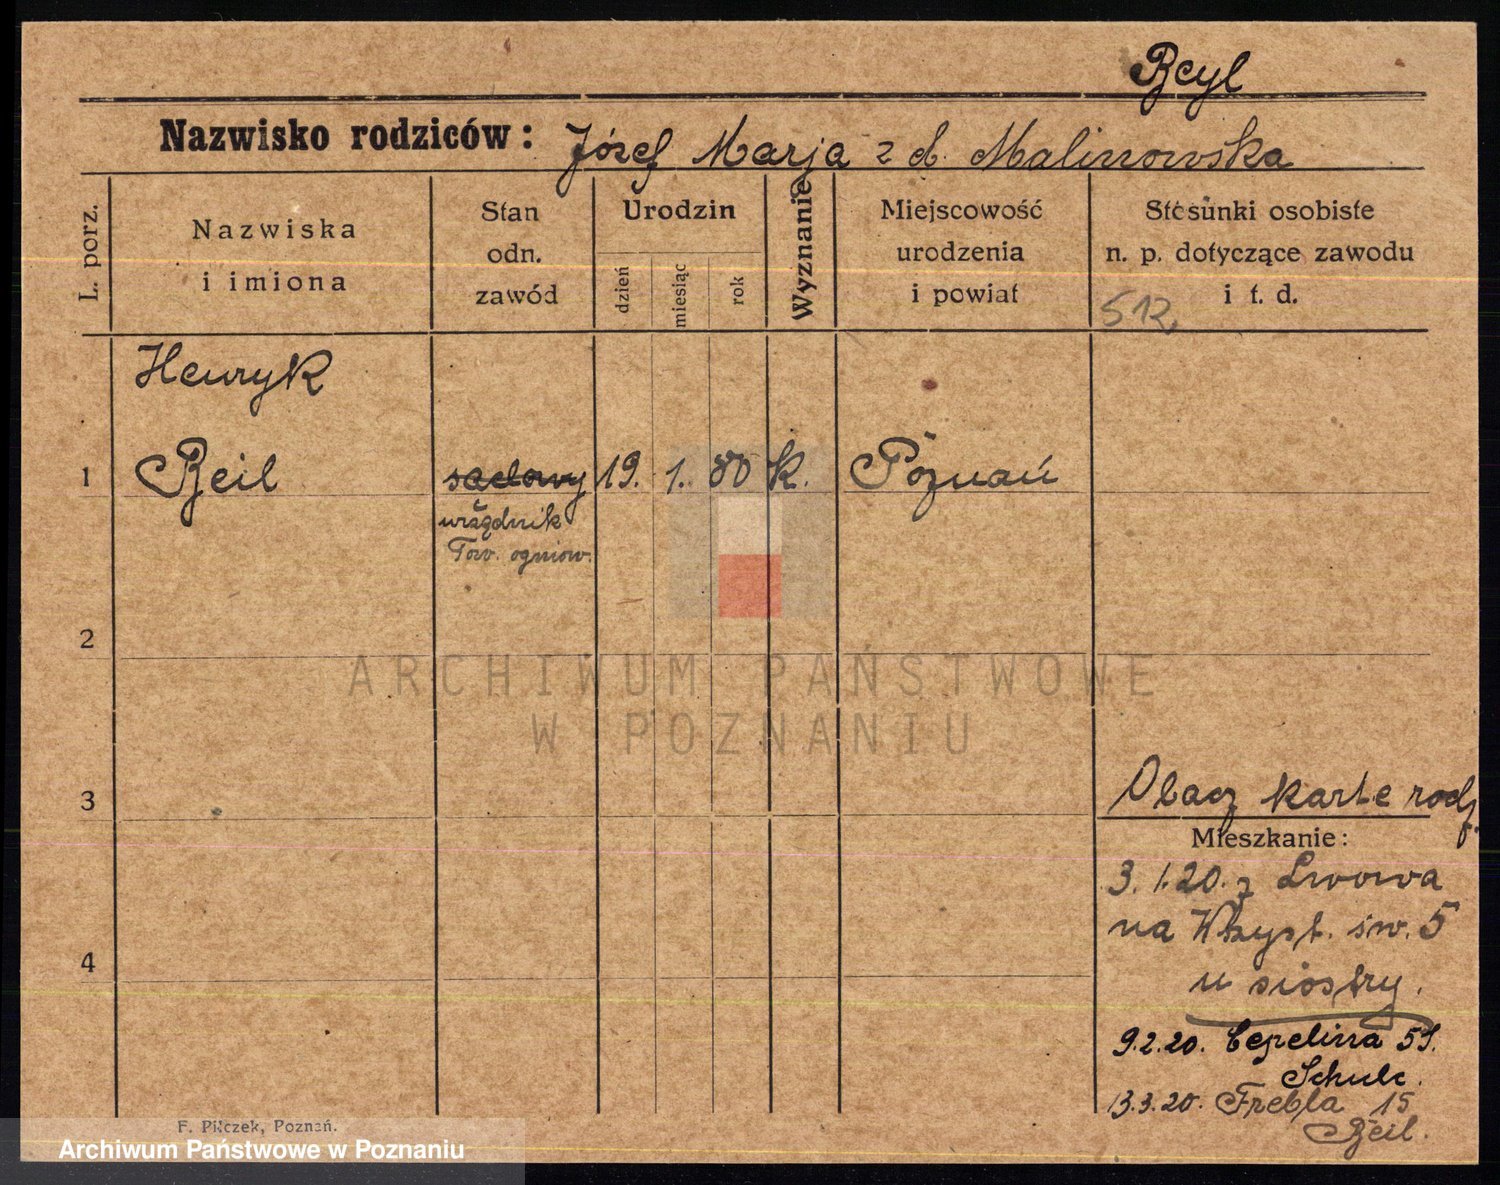 Beyl
Nazwisko rodziców: Józef Marja z d. Malinowska
L. porz.
Nazwiska
i imiona
Stan
odn.
zawód
Urodzin
dzień
miesiąc
rok
Wyznanie
Miejscowość
urodzenia
i powiat
Stosunki osobiste
n. p. dotyczące zawodu
i t. d.
512
Henryk
1 Beil sądowy 19. 1. 80 k. Poznań
urzędnik
Tow. ogniow.
2
3
4
Obacz karte rodz.
Mieszkanie:
3.1.20. z Lwowa
na Wszyst. św. 5
u siostry.
9.2.20. Cepelina 51.
Schulc.
13.3.20. Frebla 15
Beil.
F. Pilczek, Poznań.
ARCHIWUM PAŃSTWOWE
W POZNANIU
Archiwum Państwowe w Poznaniu